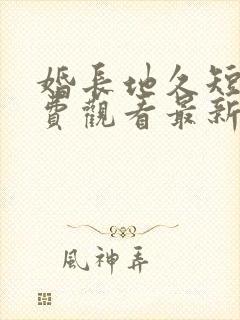 婚長地久短
費觀看最新
風神弄